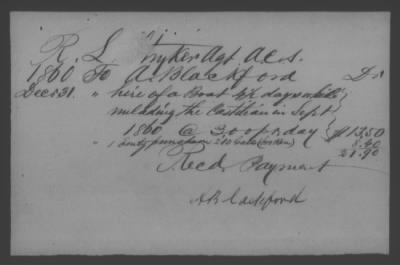 R. L. nyker Agt A.C.S.
1860 To A. Blackford Dr
Dec 31. " hire of a Boat 4½ days while
unloading the Castilian in Sept
1860 @ 3.00 pr day $13.50
" 1 empty puncheon 8.40
21.90
Recd Payment
A Blackford